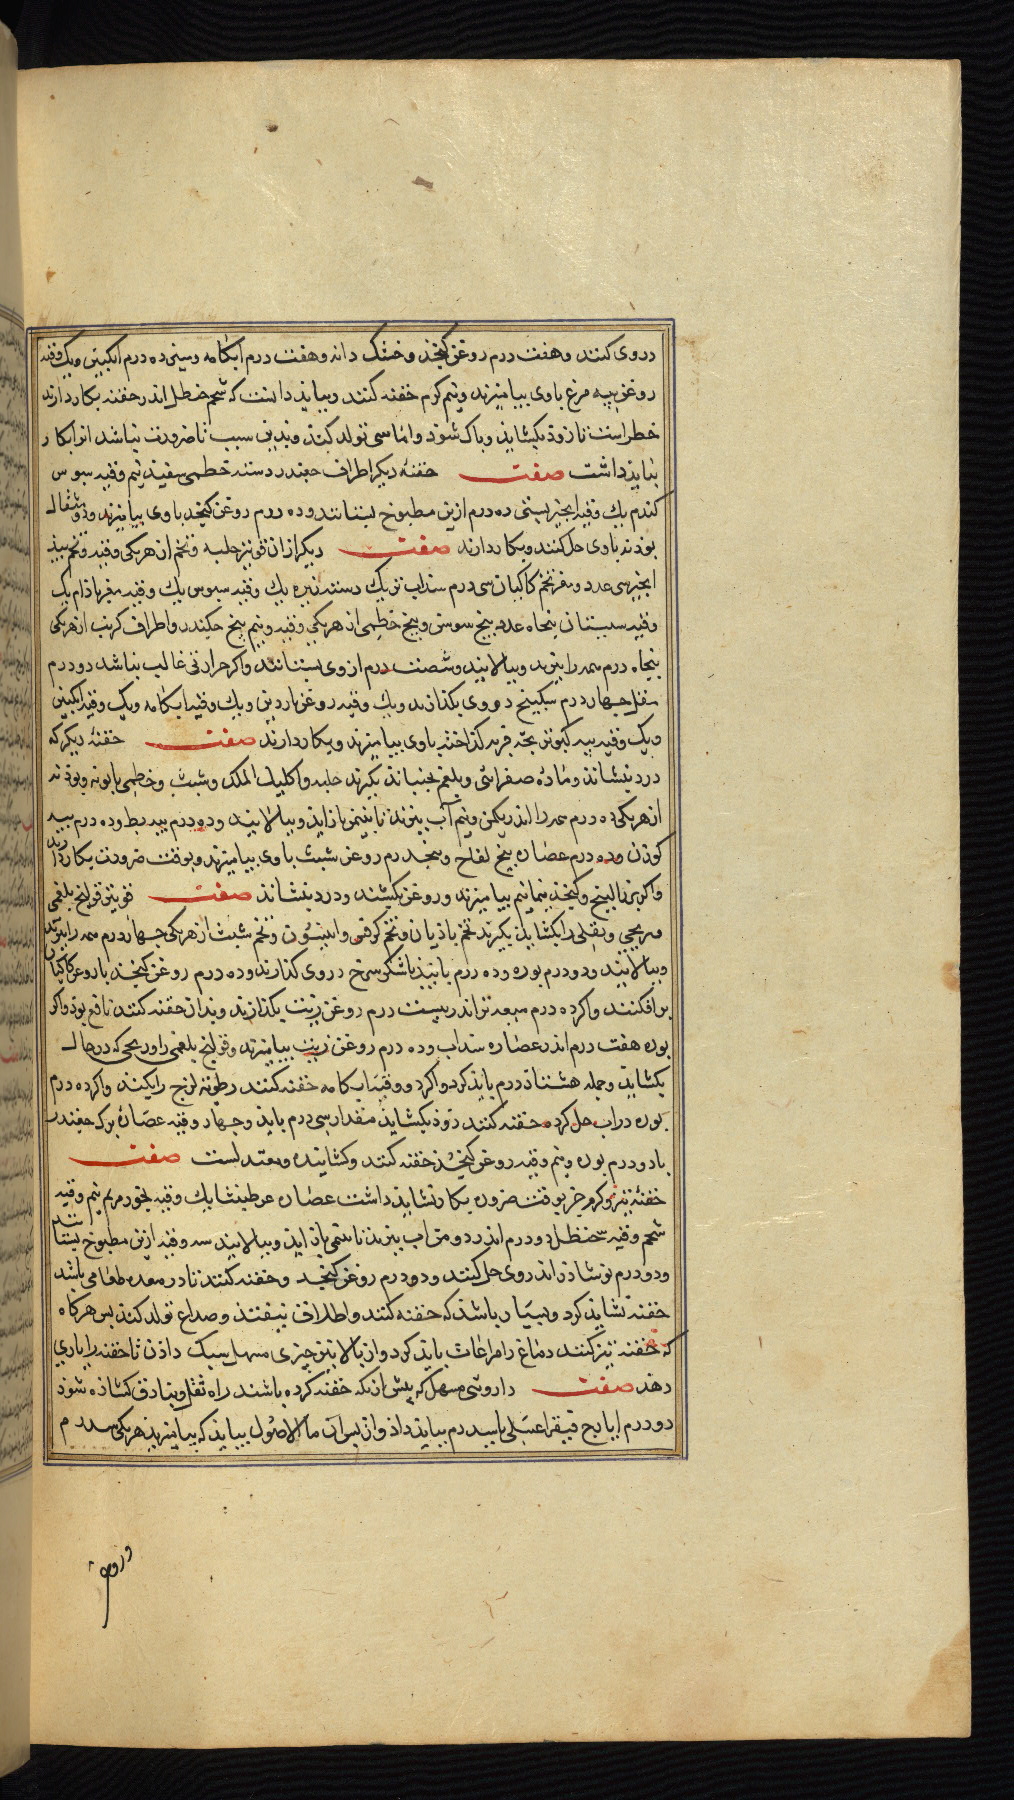 در وی کنند و هفت درم روغن کنجذ و خشک دانه و هفت درم ابکامه و سی و ده درم انکبین و یک وقیه
روغن پیه مرغ با وی بیامیزند و نیم کرم حقنه کنند و بباید دانست که شحم حنظل اندر حقنه بکار دارند
خطر است تا زوذ بکشاید و باک شود و اماسی تولد کند و بدین سبب تا ضرورت نباشد انرا بکار
نباید داشت صفت حقنهٔ دیکر اطراف جغندر دسته خطمی سفید نیم وقیه سبوس
کندم یک وقیه انجیر بستی ده درم ازین مطبوخ بستانند و ده درم روغن کنجد با وی بیامیزند و دو مثقال
بوذنه با وی حل کنند و بکار دارند صفت دیکر ازان قوی تر حلبه و تخم از هر یکی وقیه و تخم بید
انجیر سی عدد و مغز تخم کاکیان سی درم سداب تر یک دسته زیره یک وقیه سبوس یک وقیه مغز باذام یک
وقیه سبستان پنجاه عدد بیخ سوس و بیخ خطمی از هر یکی وقیه و نیم بیخ جکندر و اطراف کرنب از هر یکی
پنجاه درم همه را بپزند و ببالایند و شصت درم از وی بستانند و اکر حرارتی غالب نباشد دو درم
مقل جهار درم سکبینج در وی بکدازند و یک وقیه روغن ناردین و یک وقیه ابکامه و یک وقیه انکبین
و یک وقیه پیه کبوتر بجه فربه کداخته با وی بیامیزند و بکار دارند صفت حقنهٔ دیکر که
درد بنشاند و مادهٔ صفرائی و بلغم بجنباند بکیرند حلبه و اکلیل الملک و شبث و خطمی بابونه و بوذنه
از هر یکی ده درم همه را اندر یکمن و نیم آب بپزند تا بنیمی باز اید و ببالایند و ده درم پیه بط و ده درم پیه
کوذن و ده درم عصاره بیخ لفاح و پنجدرم روغن شبث با وی بیامیزند و بوقت ضرورت بکار دارند
و اکر بزرالبنج و کنجد نیمانیم بیامیزند و روغن بکشند و درد بنشاند صفت قوی تر قولنج بلغمی
و ریحی و ثفلی را بکشاید بکیرند تخم باذیان و تخم کرفس و انیسون و تخم شبث از هر یکی جهار درم همه را بپزند
و ببالایند و دو درم بوره و ده درم پانیذ یا شکر سرخ در وی کذارند و ده درم روغن کنجد یا روغن کاکیان
بر افکنند و اکر ده درم میعه تر اندر بیست درم روغن زیت بکدازند و بدان حقنه کنند نافع بود و اکر
بوره هفت درم اندر عصاره سداب و ده درم روغن زیت بیامیزند و قولنج بلغمی را و ریحی که در حال
بکشاید و جمله هشتاد درم باید کرد و اکر دو وقیه اب کامه حقنه کنند رطوبة لزج را بکند و اکر ده درم
بوره در اب حل کرده حقنه کنند زوذ بکشاید مقدار سی درم باید و جهار وقیه عصارهٔ برک جغندر
با دو درم بوره و نیم وقیه روغن کنجد حقنه کنند و کشاینده و معتدلست صفت
حقنهٔ تیز و کرم جز بوقت ضروره بکار نشاید داشت عصاره عرطنیثا یک وقیه بخور مریم نیم وقیه
شحم حنظل دو درم اندر دو من اب بپزند تا بنیمی باز اید و ببالایند سه وقیه ازین مطبوخ بستانند
و دو درم نوشاذر اندر وی حل کنند و دو درم روغن کنجد و حقنه کنند تا در معده طعامی باشد
حقنه نشاید کرد و بسیار باشذ که حقنه کنند و اطلاق نیفتد و صداع تولد کند بس هرکاه
که حقنه تیز کنند دماغ را مراعات باید کرد و از بالا نیز چیزی مسهل سبک داذن تا حقنه را یاری
دهد صفت داروئی مسهل که بیش از نکه حقنه کرده باشند راه ثفل و بنادق کشاذه شوذ
دو درم ایارج فیقرا عسلی یا سه درم بباید داذ و از بس آن ماء الاصول بباید که بیامیزند هر یکی سه درم